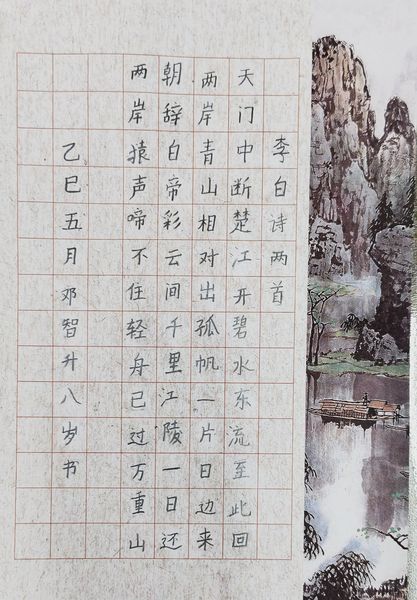 李白诗两首
天门中断楚江开碧水东流至此回
两岸青山相对出孤帆一片日边来
朝辞白帝彩云间千里江陵一日还
两岸猿声啼不住轻舟已过万重山
乙巳五月邓智升八岁书